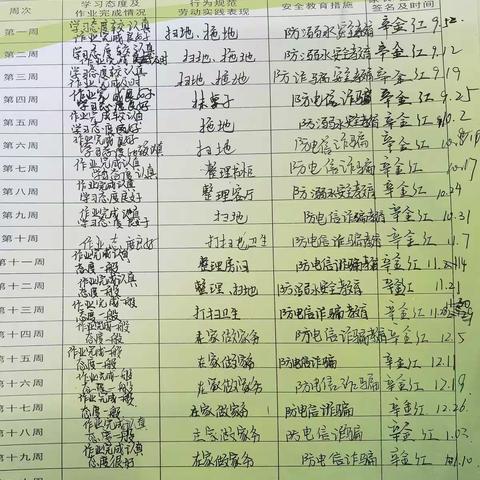 周次 学习态度及 行为规范 安全教育措施
作业完成情况 劳动实践表现 签名及时间
第一周 学习态度较认真 扫地、拖地 防溺水安全教育 辛金红 9.
作业完成良好
第二周 学习态度较认真 扫地、拖地 防溺水安全教育 辛金红 9.12
第三周 学习态度较认真 扫地、拖地 防诈骗安全教育 辛金红 9.19
作业完成及时
第四周 作业完成良好 抹桌子 防电信诈骗 辛金红 9.25
学习态度良好
第五周 作业完成较认真 拖地 防溺水安全教育 辛金红 10.2
学习态度良好
第六周 作业完成较好 扫地 防电信诈骗 辛金红
第七周 作业完成认真 整理书柜 防电信诈骗 辛金红 10.17
学习态度认真
第八周 作业完成认真 整理客厅 防溺水安全教育 辛金红 10.24
学习态度良好
第九周 作业完成 扫地 防电信诈骗教育 辛金红 10.31
第十周 作业态度良好 打扫卫生 防电信诈骗教育 辛金红 11.7
第十一周 作业完成认真 整理房间 防电信诈骗教育 辛金红
态度一般
第十二周 作业完成一般 整理、扫地 防溺水安全教育 辛金红 11.21
态度一般
第十三周 作业完成一般 打扫卫生 防电信诈骗教育 辛金红
态度一般
第十四周 作业完成一般 在家做家务 防电信诈骗教育 辛金红 12.5
第十五周 作业完成一般 在家做家务 防电信诈骗 辛金红 12.11
态度一般
第十六周 作业完成一般 在家做家务 防电信诈骗 辛金红 12.19
态度一般
第十七周 作业完成一般 在家做家务 防电信诈骗 辛金红 12.26
态度一般
第十八周 作业完成认真 在家做家务 防电信诈骗 辛金红 1.03
态度一般
第十九周 作业完成认真 在家做家务 防电信诈骗 辛金红 1.10
态度很好